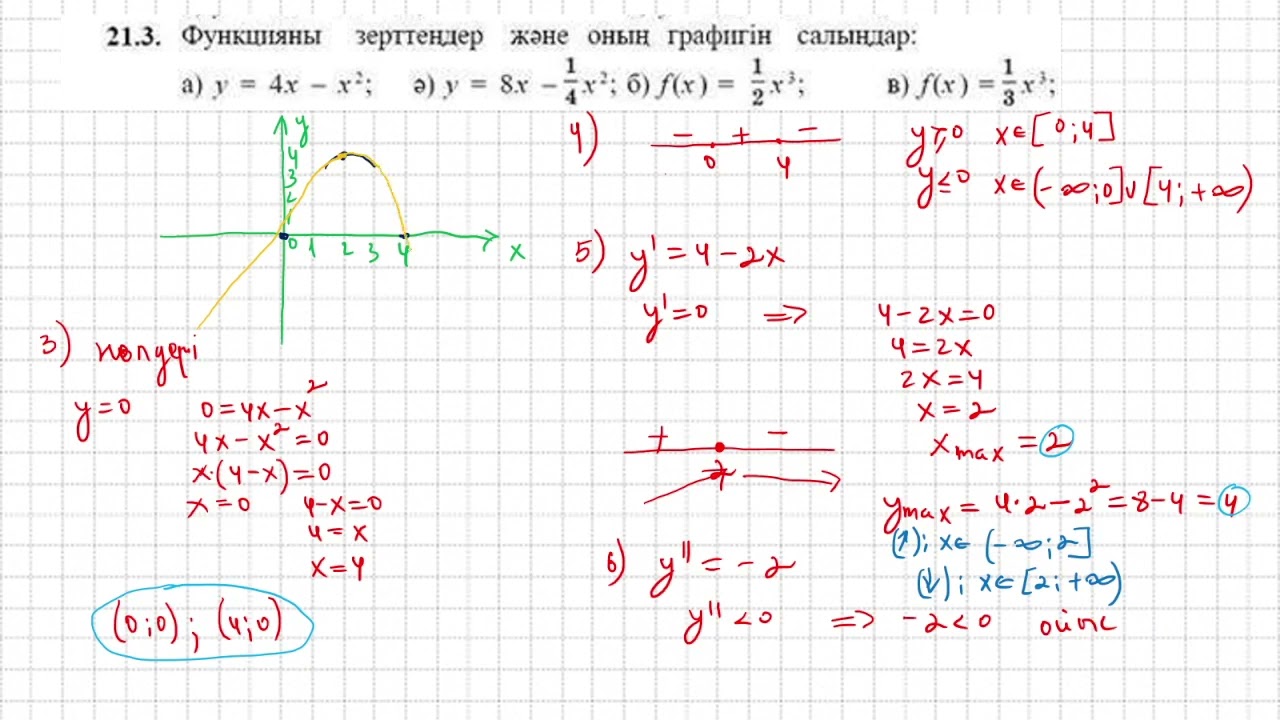 21.3. Функцияны зерттеңдер және оның графигін салыңдар:
а) y = 4x − x²; ә) y = 8x − 1/4 x²; б) f(x) = 1/2 x³; в) f(x) = 1/3 x³;
y
4
3
2
1
0 1 2 3 4 x
3) нөлдері
y=0 0=4x−x²
4x−x²=0
x·(4−x)=0
x=0 4−x=0
4=x
x=4
(0;0); (4;0)
4) − + −
0 4
y≥0 x∈[0;4]
y≤0 x∈(−∞;0]∪[4;+∞)
5) y'=4−2x
y'=0 ⇒ 4−2x=0
4=2x
2x=4
x=2
+ −
2
xmax=2
ymax=4·2−2²=8−4=4
(↑); x∈(−∞;2]
(↓); x∈[2;+∞)
6) y''=−2
y''<0 ⇒ −2<0 ойыс